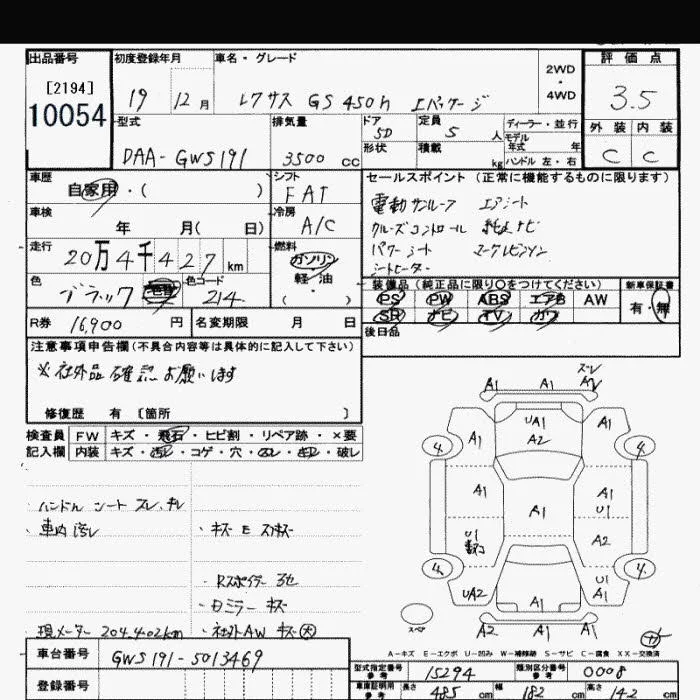 出品番号 初度登録年月 車名・グレード 2WD・4WD 評価点
[2194]
10054
19 12月 レクサス GS450h Eパッケージ 3.5
型式 排気量 ドア 定員 ディーラー・並行 外装 内装
DAA-GWS191 3500cc 5D 5人 モデル年式 年
形状 積載 kg ハンドル 左・右 C C
車歴 シフト セールスポイント (正常に機能するものに限ります)
自家用・( ) FAT 電動サンルーフ エアシート
車検 冷房 クルーズコントロール 純正ナビ
年 月( 日) A/C パワーシート マークレビンソン
走行 燃料 シートヒーター
20万4千427km ガソリン 軽・油 ( )
色 色コード 装備品 (純正品に限り○をつけてください) 新車保証書
ブラック 色替 214 PS PW ABS エアB AW 有・無
SR ナビ TV カワ
R券 16,900円 名変期限 月 日 後日品
注意事項申告欄 (不具合内容等は具体的に記入して下さい)
※社外品確認お願います
修復歴 有 〔箇所 〕
検査員 FW キズ・飛石・ヒビ割・リペア跡・×要
記入欄 内装 キズ・汚レ・コゲ・穴・スレ・キレ・破レ
ハンドル シート スレ、チレ
車内汚レ ・キズ E スリキズ
・Rスポイラー 3セ
・Dミラー キズ
現メーター 204,402km ・社外AW キズ大
車台番号 GWS191-5013469
登録番号
ズレ
A1 A1 A2
UA1
A2
A1 A1
4 4
A1 A1 A1
U1
U1 A2
4 4
UA2 U1
A1 A1
スペア A2 A1 A1
A-キズ E-エクボ U-凹み W-補修跡 S-サビ C-腐食 XX-交換済
型式指定番号 参考 15294 類別区分番号 参考 0008
車庫証明用 参考 長さ 485cm 幅 182cm 高さ 142cm